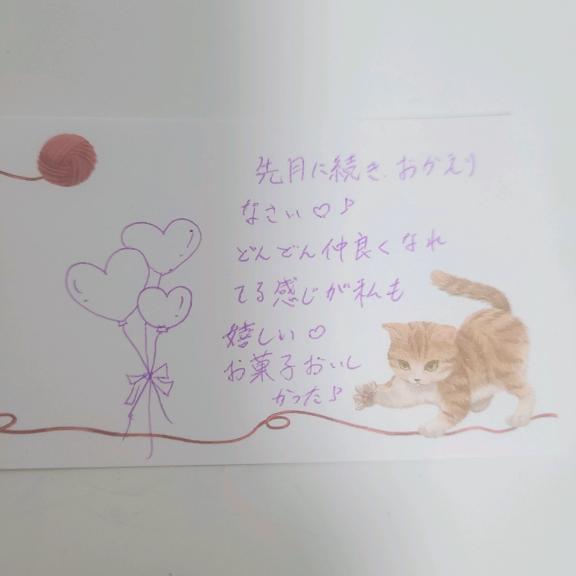 先月に続き、おかえり
なさい♡♪
どんどん仲良くなれ
てる感じが私も
嬉しい♡
お菓子おいし
かった♪